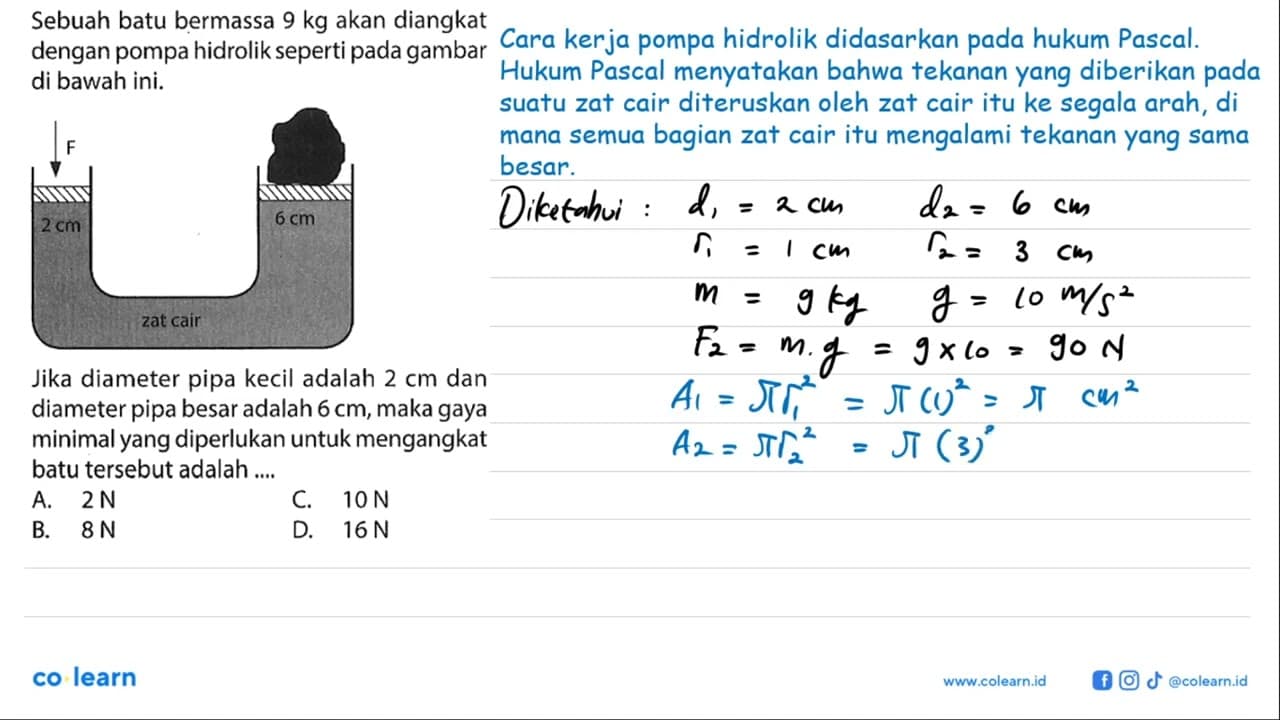 Sebuah batu bermassa 9 kg akan diangkat
dengan pompa hidrolik seperti pada gambar
di bawah ini.
F
2 cm
6 cm
zat cair
Jika diameter pipa kecil adalah 2 cm dan
diameter pipa besar adalah 6 cm, maka gaya
minimal yang diperlukan untuk mengangkat
batu tersebut adalah ....
A. 2 N C. 10 N
B. 8 N D. 16 N
Cara kerja pompa hidrolik didasarkan pada hukum Pascal.
Hukum Pascal menyatakan bahwa tekanan yang diberikan pada
suatu zat cair diteruskan oleh zat cair itu ke segala arah, di
mana semua bagian zat cair itu mengalami tekanan yang sama
besar.
Diketahui : d₁ = 2 cm d₂ = 6 cm
r₁ = 1 cm r₂ = 3 cm
m = 9 kg g = 10 m/s²
F₂ = m.g = 9 x 10 = 90 N
A₁ = πr₁² = π(1)² = π cm²
A₂ = πr₂² = π(3)²
co learn
www.colearn.id
@colearn.id